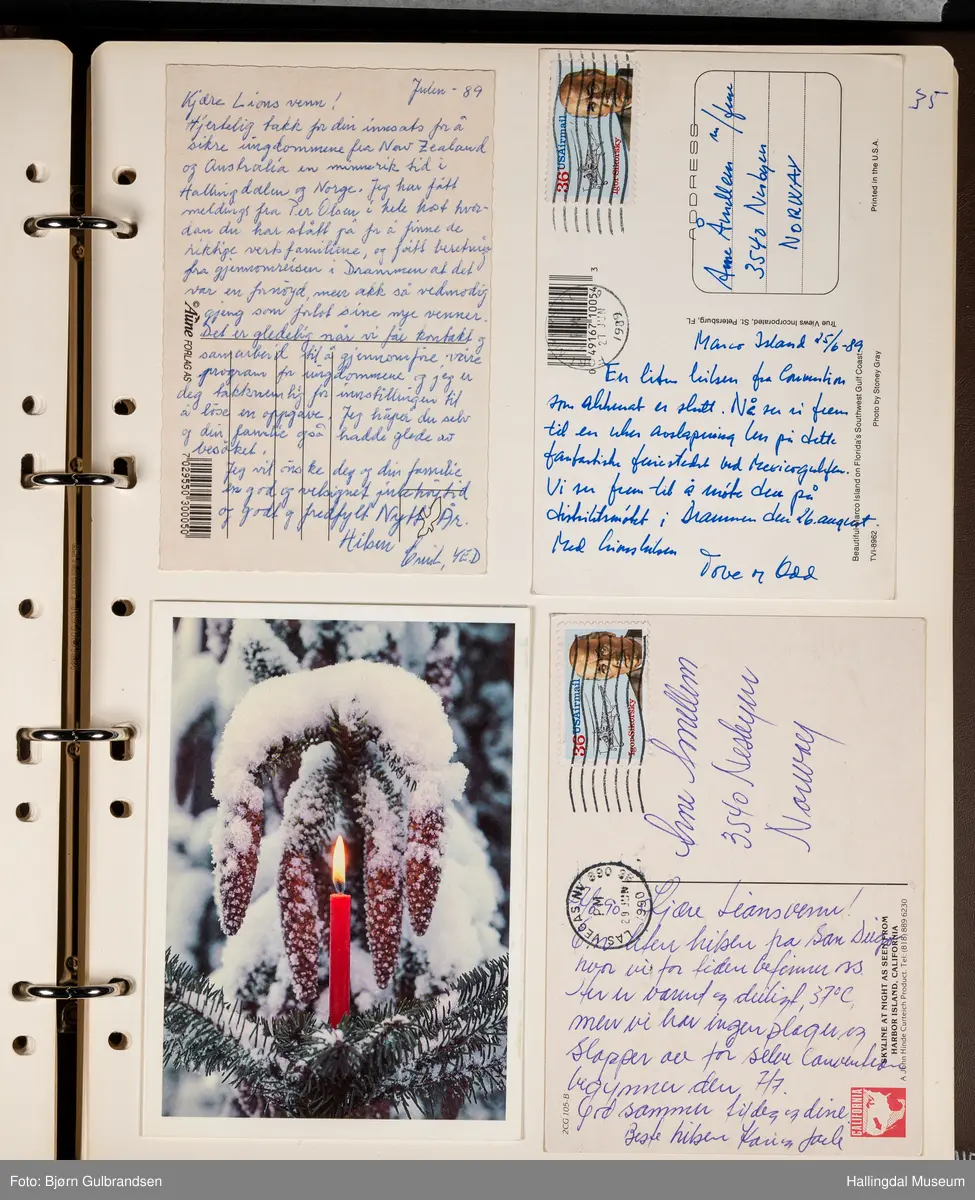 Julen - 89
Kjære Lions venn!
Hjertelig takk for din innsats for å
sikre ungdommene fra New Zealand
og Australia en minnerik tid i
Hallingdalen og Norge. Jeg har fått
meldings fra Per Olsen i hele høst hvor-
dan du har stått på for å finne de
riktige vertsfamiliene, og fått beretning
fra gjennomreisen i Drammen at det
var en fornøyd, men akk så vedmodig
gjeng som forlot sine nye venner.
Det er gledelig når vi får kontakt og
samarbeid til å gjennomføre våre
program for ungdommene og jeg er
deg takknemlig for innstillingen til
å löse en oppgave. Jeg håper du selv
og din familie også hadde glede av
besöket.
Jeg vil önske deg og din familie
en god og velsignet julehöytid
og godt og fredfylt Nytt År.
Hilsen
YED
© Aune FORLAG AS
7 029550 300050
36 USAirmail
Igor Sikorsky
ADDRESS
Anne Å Smellem m/fam
3540 Nesbyen
NORWAY
Printed in the U.S.A.
45
0 49167 10054 3
21 JUN
1989
True Views Incorporated, St. Petersburg, FL
Marco Island 25/6-89
En liten hilsen fra Convention
som akkurat er slutt. Nå ser vi frem
til en ukes avslapning her på dette
fantastiske feriestedet ved Mexicogulfen.
Vi ser frem til å møte deg på
distriktsmøtet i Drammen den 26. august
Med lionshilsen
Tove og Odd
Beautiful Marco Island on Florida's Southwest Gulf Coast.
Photo by Stoney Gray
TVI-8962
36 USAirmail
Igor Sikorsky
Anne Smellem
3540 Nesbyen
Norway
LAS VEGAS, NV 890
PM
29 JUN
1990
Kjære Lionsvenn!
En liten hilsen fra San Diego
hvor vi for tiden befinner oss.
Her er varmt og deiligt, 37°C,
men vi har ingen plager og
slapper av før selve Convention
begynner den 7/7.
God sommer til deg og dine
Beste hilsen Kari og Jarle
SKYLINE AT NIGHT AS SEEN FROM
HARBOR ISLAND, CALIFORNIA
A John Hinde Curteich Product. Tel: (818) 889 6230
2CG 105-B
CALIFORNIA
Foto: Bjørn Gulbrandsen
Hallingdal Museum